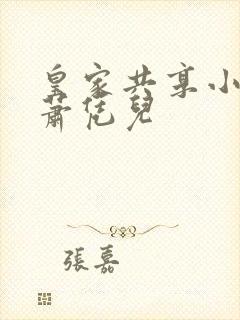 皇家共享小
蕭恁兒
張嘉